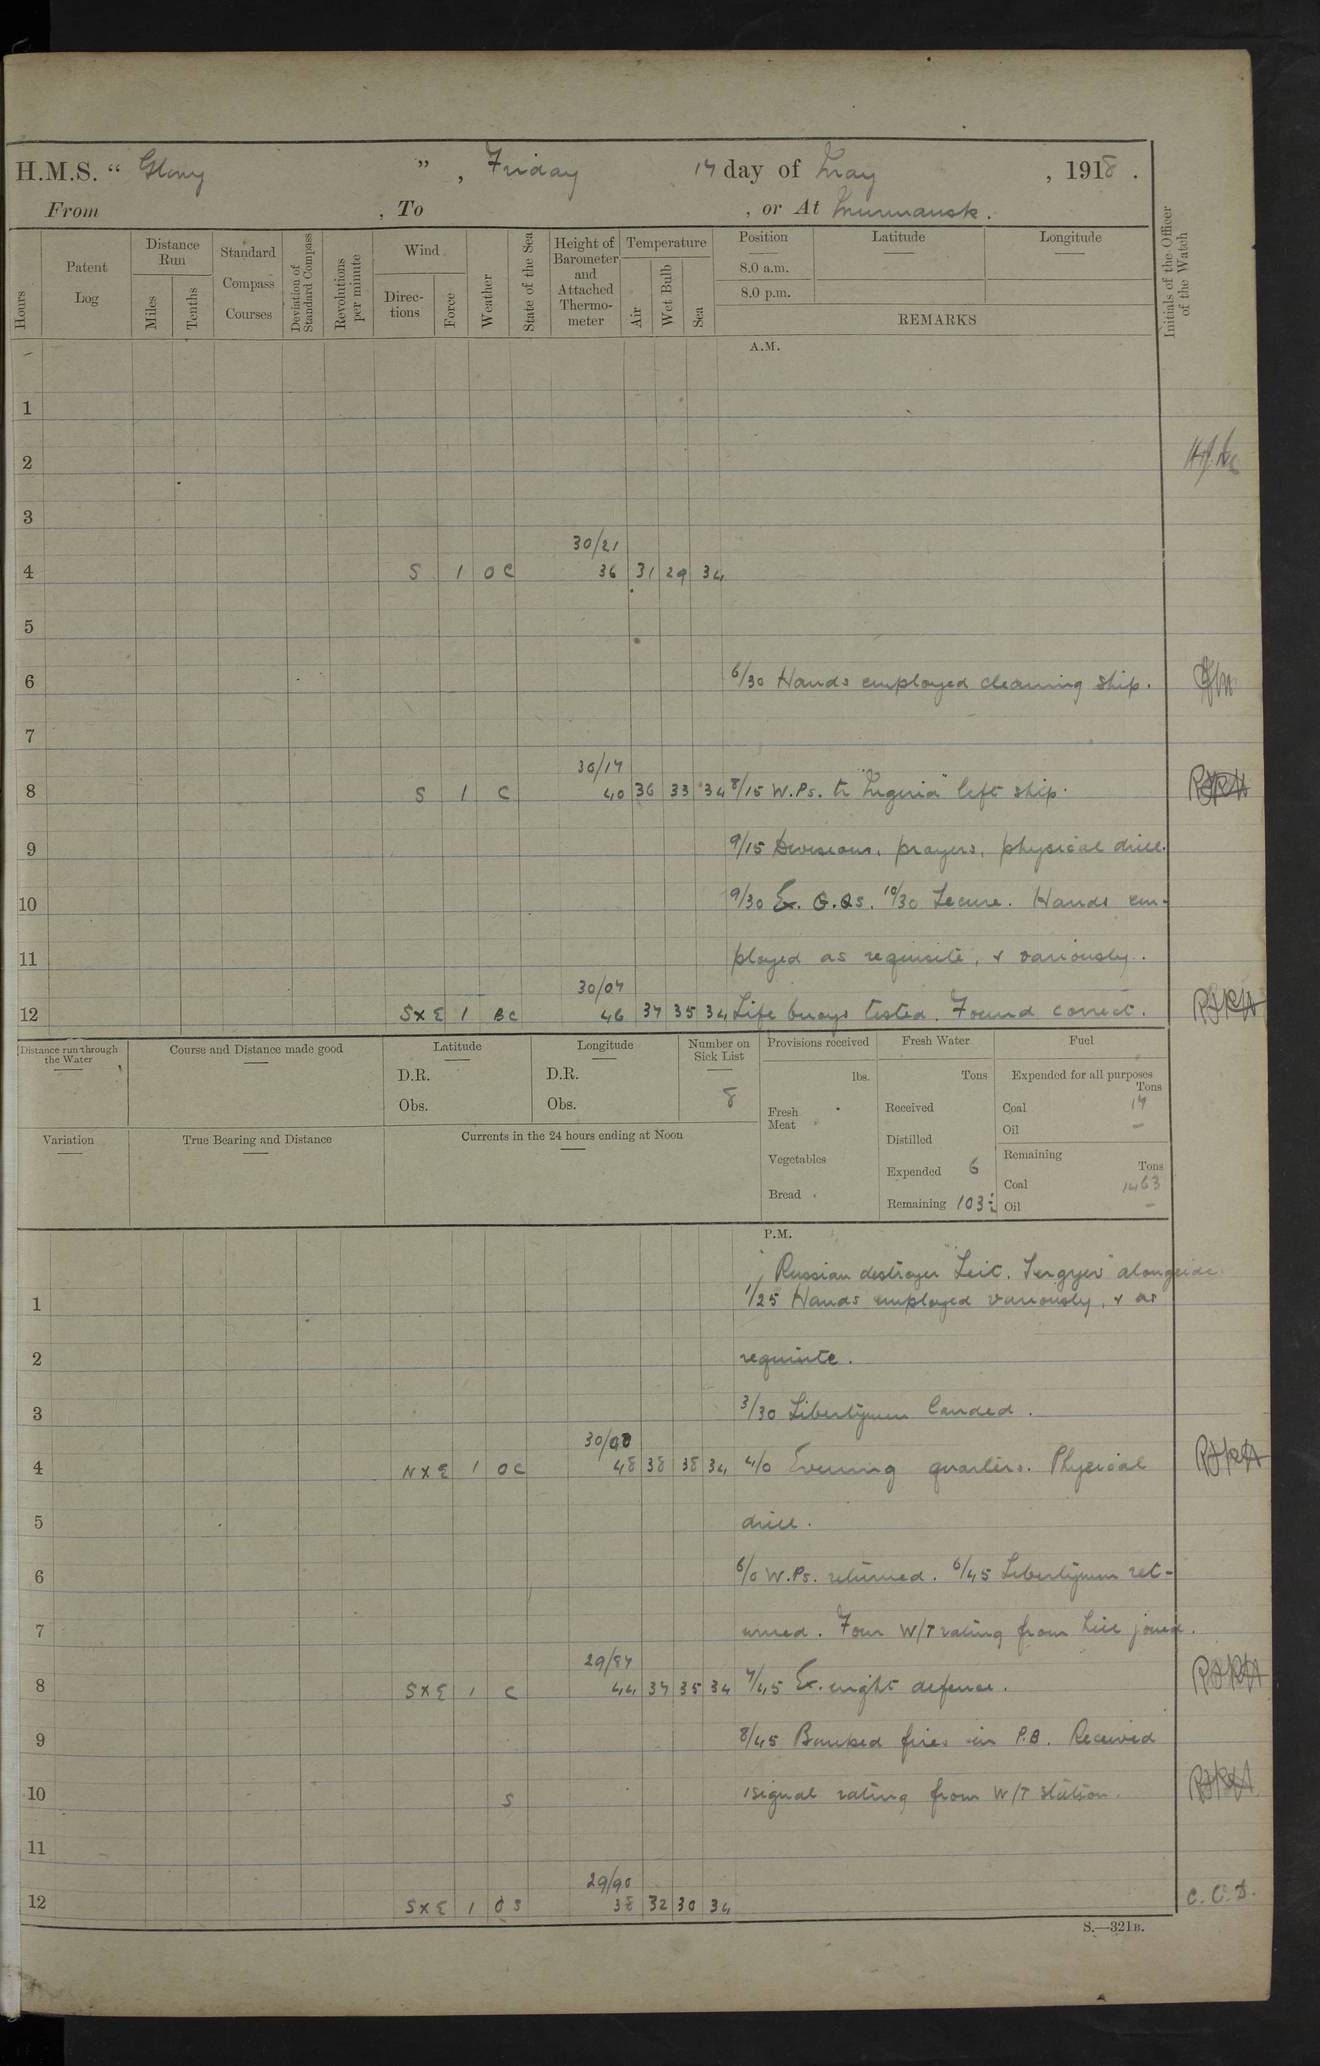 H.M.S. “ Glory ” , Friday 17 day of May , 1918 .
From , To , or At Murmansk .
Hours
Patent Log
Distance Run
Miles
Tenths
Standard Compass Courses
Deviation of Standard Compass
Revolutions per minute
Wind
Directions
Force
Weather
State of the Sea
Height of Barometer and Attached Thermometer
Temperature
Air
Wet Bulb
Sea
Position
8.0 a.m.
8.0 p.m.
Latitude
Longitude
REMARKS
Initials of the Officer of the Watch
A.M.
1
2
3
30/21
4 S 1 OC 36 31 29 34
5
6 6/30 Hands employed cleaning ship.
7
30/17
8 S 1 C 40 36 33 34 8/15 W.Ps. to left ship.
9 9/15 Divisions, prayers, physical drill.
10 9/30 Ex. G.Qs. 10/30 Secure. Hands em-
11 ployed as requisite, & variously.
30/07
12 SxE 1 BC 46 37 35 34 Life buoys tested. Found correct.
Distance run through the Water
Course and Distance made good
Latitude
D.R.
Obs.
Longitude
D.R.
Obs.
Number on Sick List
8
Provisions received
lbs.
Fresh Meat
Vegetables
Bread
Fresh Water
Tons
Received
Distilled
Expended 6
Remaining 103½
Fuel
Expended for all purposes
Tons
Coal 17
Oil –
Remaining
Tons
Coal 1463
Oil –
Variation
True Bearing and Distance
Currents in the 24 hours ending at Noon
P.M.
Russian destroyer "Leit. Sergyev" alongside.
1 1/25 Hands employed variously, & as
2 requisite.
3 3/30 Libertymen landed.
30/00
4 NxE 1 OC 48 38 38 34 4/0 Evening quarters. Physical
5 drill.
6 6/0 W.Ps. returned. 6/45 Libertymen ret-
7 urned. Four W/T rating from joined.
29/87
8 SxE 1 C 44 37 35 34 7/45 Ex. night defence.
9 8/45 Banked fires in P.B. Received
10 S 1 signal rating from W/T station.
11
29/90
12 SxE 1 OS 38 32 30 34 C.C.D.
S.—321B.